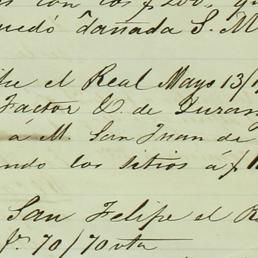 con los $200,
quedó dañada S. M
el Real Mayo 13/
Factor & de Duran
á M. San Juan de
ndo los sitios a $1
San Felipe el R
fs. 70/70 vta